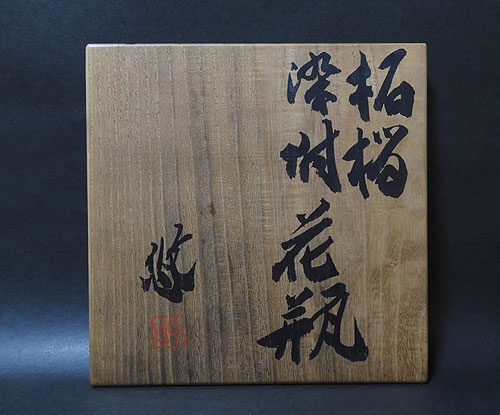 柘榴
染附
花瓶
悠